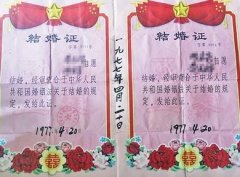 结婚证
自愿
结婚，经审查合于中华人民
共和国婚姻法关于结婚的规
定，发给此证。
1977.4.20
囍
一九七七年四月二十日
结婚证
自愿
结婚，经审查合于中华人民
共和国婚姻法关于结婚的规
定，发给此证。
1977.4.20
囍